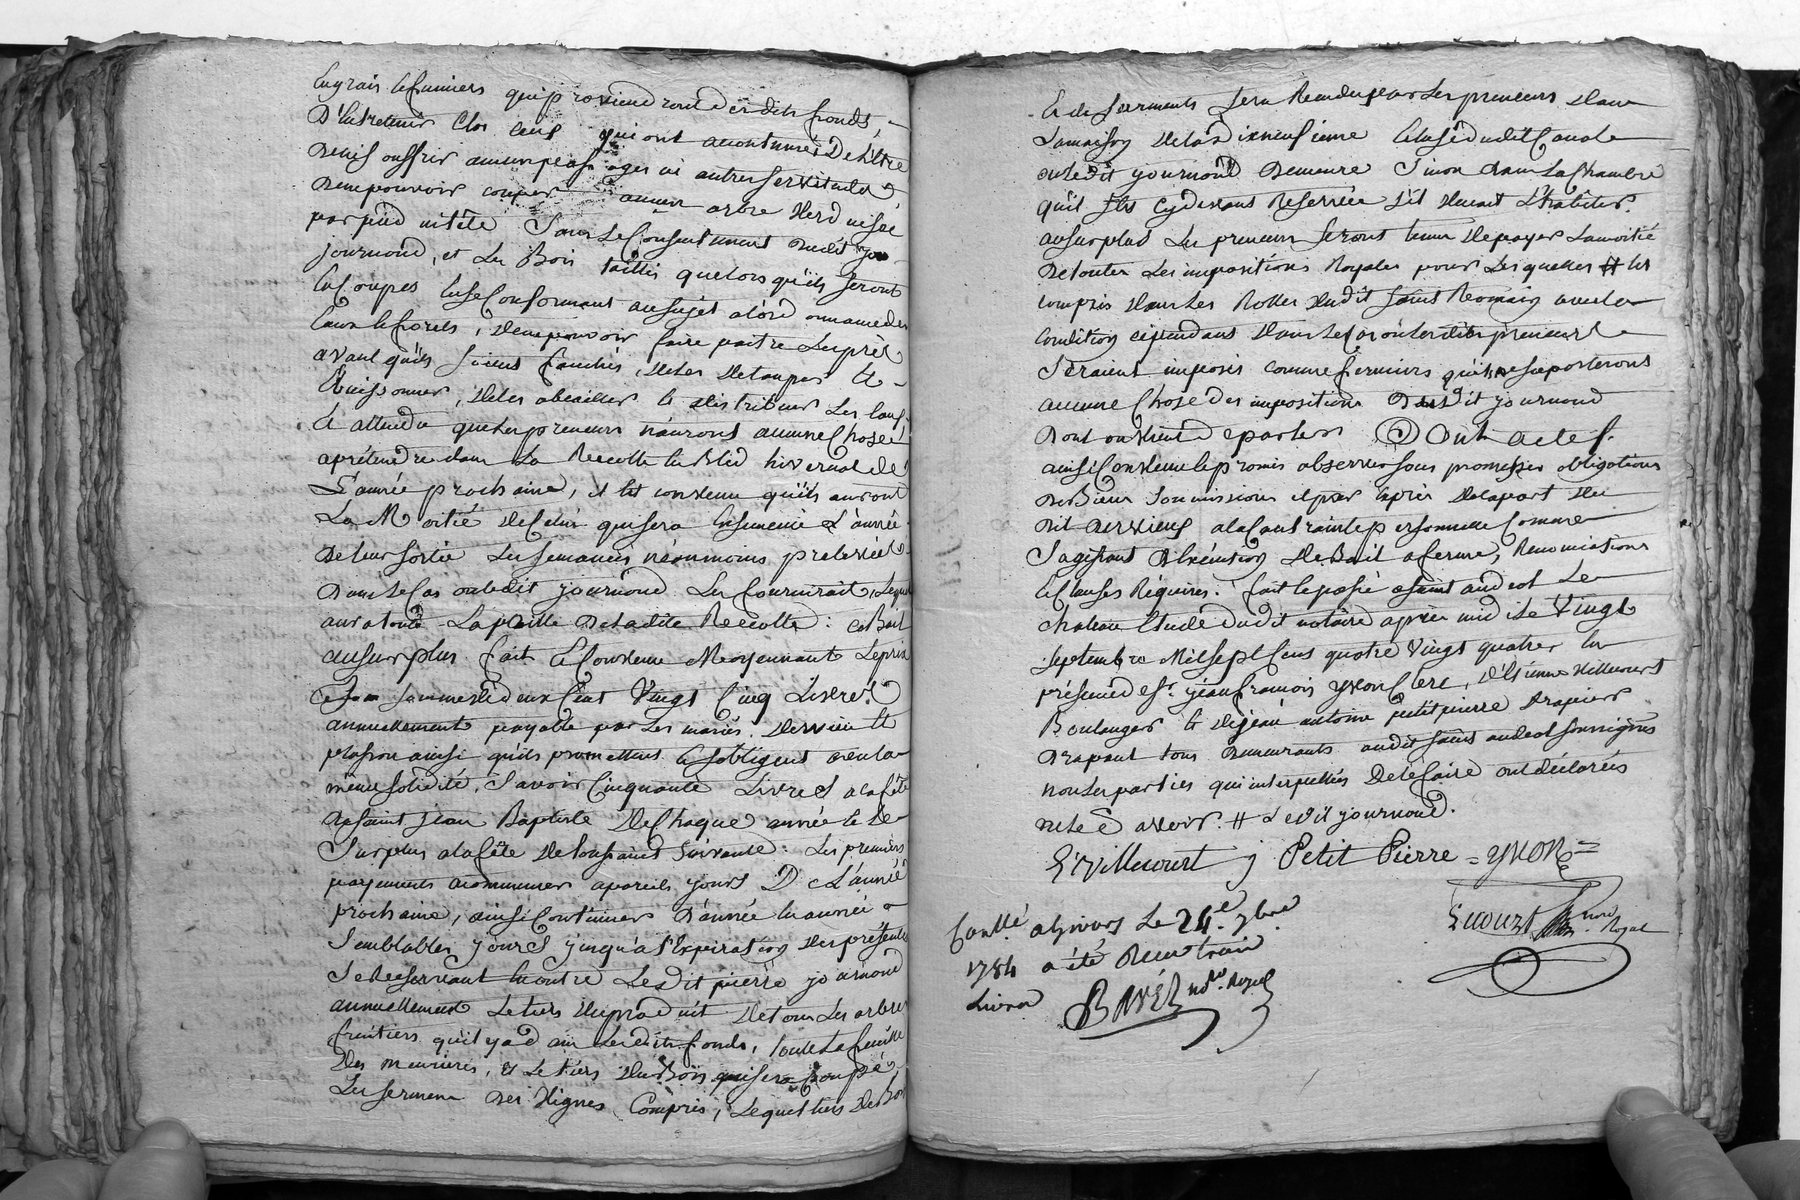 Engrais et fumiers qui proviendront desdits fonds,
D'Entretenir Clos ceux qui ont accoutumés De L'Etre
De ni souffrir aucun passages ni autres servitudes,
De ne pouvoir couper aucun arbre Verd ni sec
par pied ni tete Sans Le Consentement dudit
journoud, et Les Bois taillis que lors qu'ils seront
En Coupes En se Conformant au sujet
Eaux et forets, De ne pouvoir faire paitre Les prés
avant qu'ils soient fauchés, De Les Detauper et
Buissonner, De Les abealler et Distribuer Les Eaux
Et attendu que Les preneurs n'auront aucune Chose
a prétendre dans La Recolte En Bled hivernal de
L'année prochaine, il Est convenu qu'ils auront
La Moitié De Celui qui sera Ensemencé L'année
De Leur sortie Les semances néanmoins prelevées
Dans Le Cas ou Ledit journoud Les fourniroit, Lequel
aura toute La paille De Ladite Recolte : Ce Bail
au surplus fait Et Convenu Moyennant Le prix
Et somme de deux Cent Vingt Cinq Livres
annuellement payable par Les mariés Dervieu et
plasson ainsi qu'ils promettent Et s'obligent sous La
même solidité, Savoir Cinquante Livres a La fête
De saint jean Baptiste De Chaque année et Le
Surplus a La fête De toussaint suivante : Les premiers
payements a commencer a pareils jours De L'année
prochaine, ainsi Continuer D'année En année a
Semblables jours jusqu'a L'Expiration Des présentes
Se Reservant En outre Ledit pierre journoud
annuellement Le tiers Du produit De tous Les arbres
fruitiers qu'il y a dans Lesdits fonds, toute La feuille
Des muriers, et Le tiers Du Bois qui sera Coupé
Les serments Des Vignes Compris, Lequel tiers De Bois
Et de serments sera Rendu par Les preneurs Dans
La maison De La dixneufieme Ecluse dudit Canal
ou Ledit journoud Demeure Sinon Dans La Chambre
qu'il s'Est Cydevant Reservée s'il Venoit L'habiter.
au surplus Les preneurs seront tenus De payer La moitié
De toutes Les impositions Royales pour Lesquelles # Est
compris Dans Les Rolles Dudit saint Romain avec La
Condition cependant Dans Le Cas ou Lesdits preneurs
Seraient imposés comme fermiers qu'ils ne suporteront
aucune Chose Des impositions Dudit journoud
Dont on Vient De parler Dont acte
ainsi Convenu Et promis observer sous promesses obligations
De Biens Soumissions et par Exprès De La part Du
dit Dervieux a La Contrainte personnelle Comme
S'agissant D'Exécution De Bail a ferme, Renonciations
Et Clauses Requises. fait Et passé a saint andeol Le
Chateau Etude Dudit notaire après midi Le Vingt
septembre Mil sept Cent quatre Vingt quatre En
présence de sr. jean francois yvon Clerc, D'Etienne Villecourt
Boulanger Et De jean antoine petitpierre Drapier
Drapant tous Demeurants audit saint andeol soussignés
non Les parties qui interpellées De Le faire ont déclarées
ne Le Savoir. # Ledit journoud.
Et Villecourt j Petit Pierre = YVON =
Lecourt nore Royal
Contllé a Givors Le 24e. 7bre
1784 a été Reçu trois
Livres BAVET nre. Royal